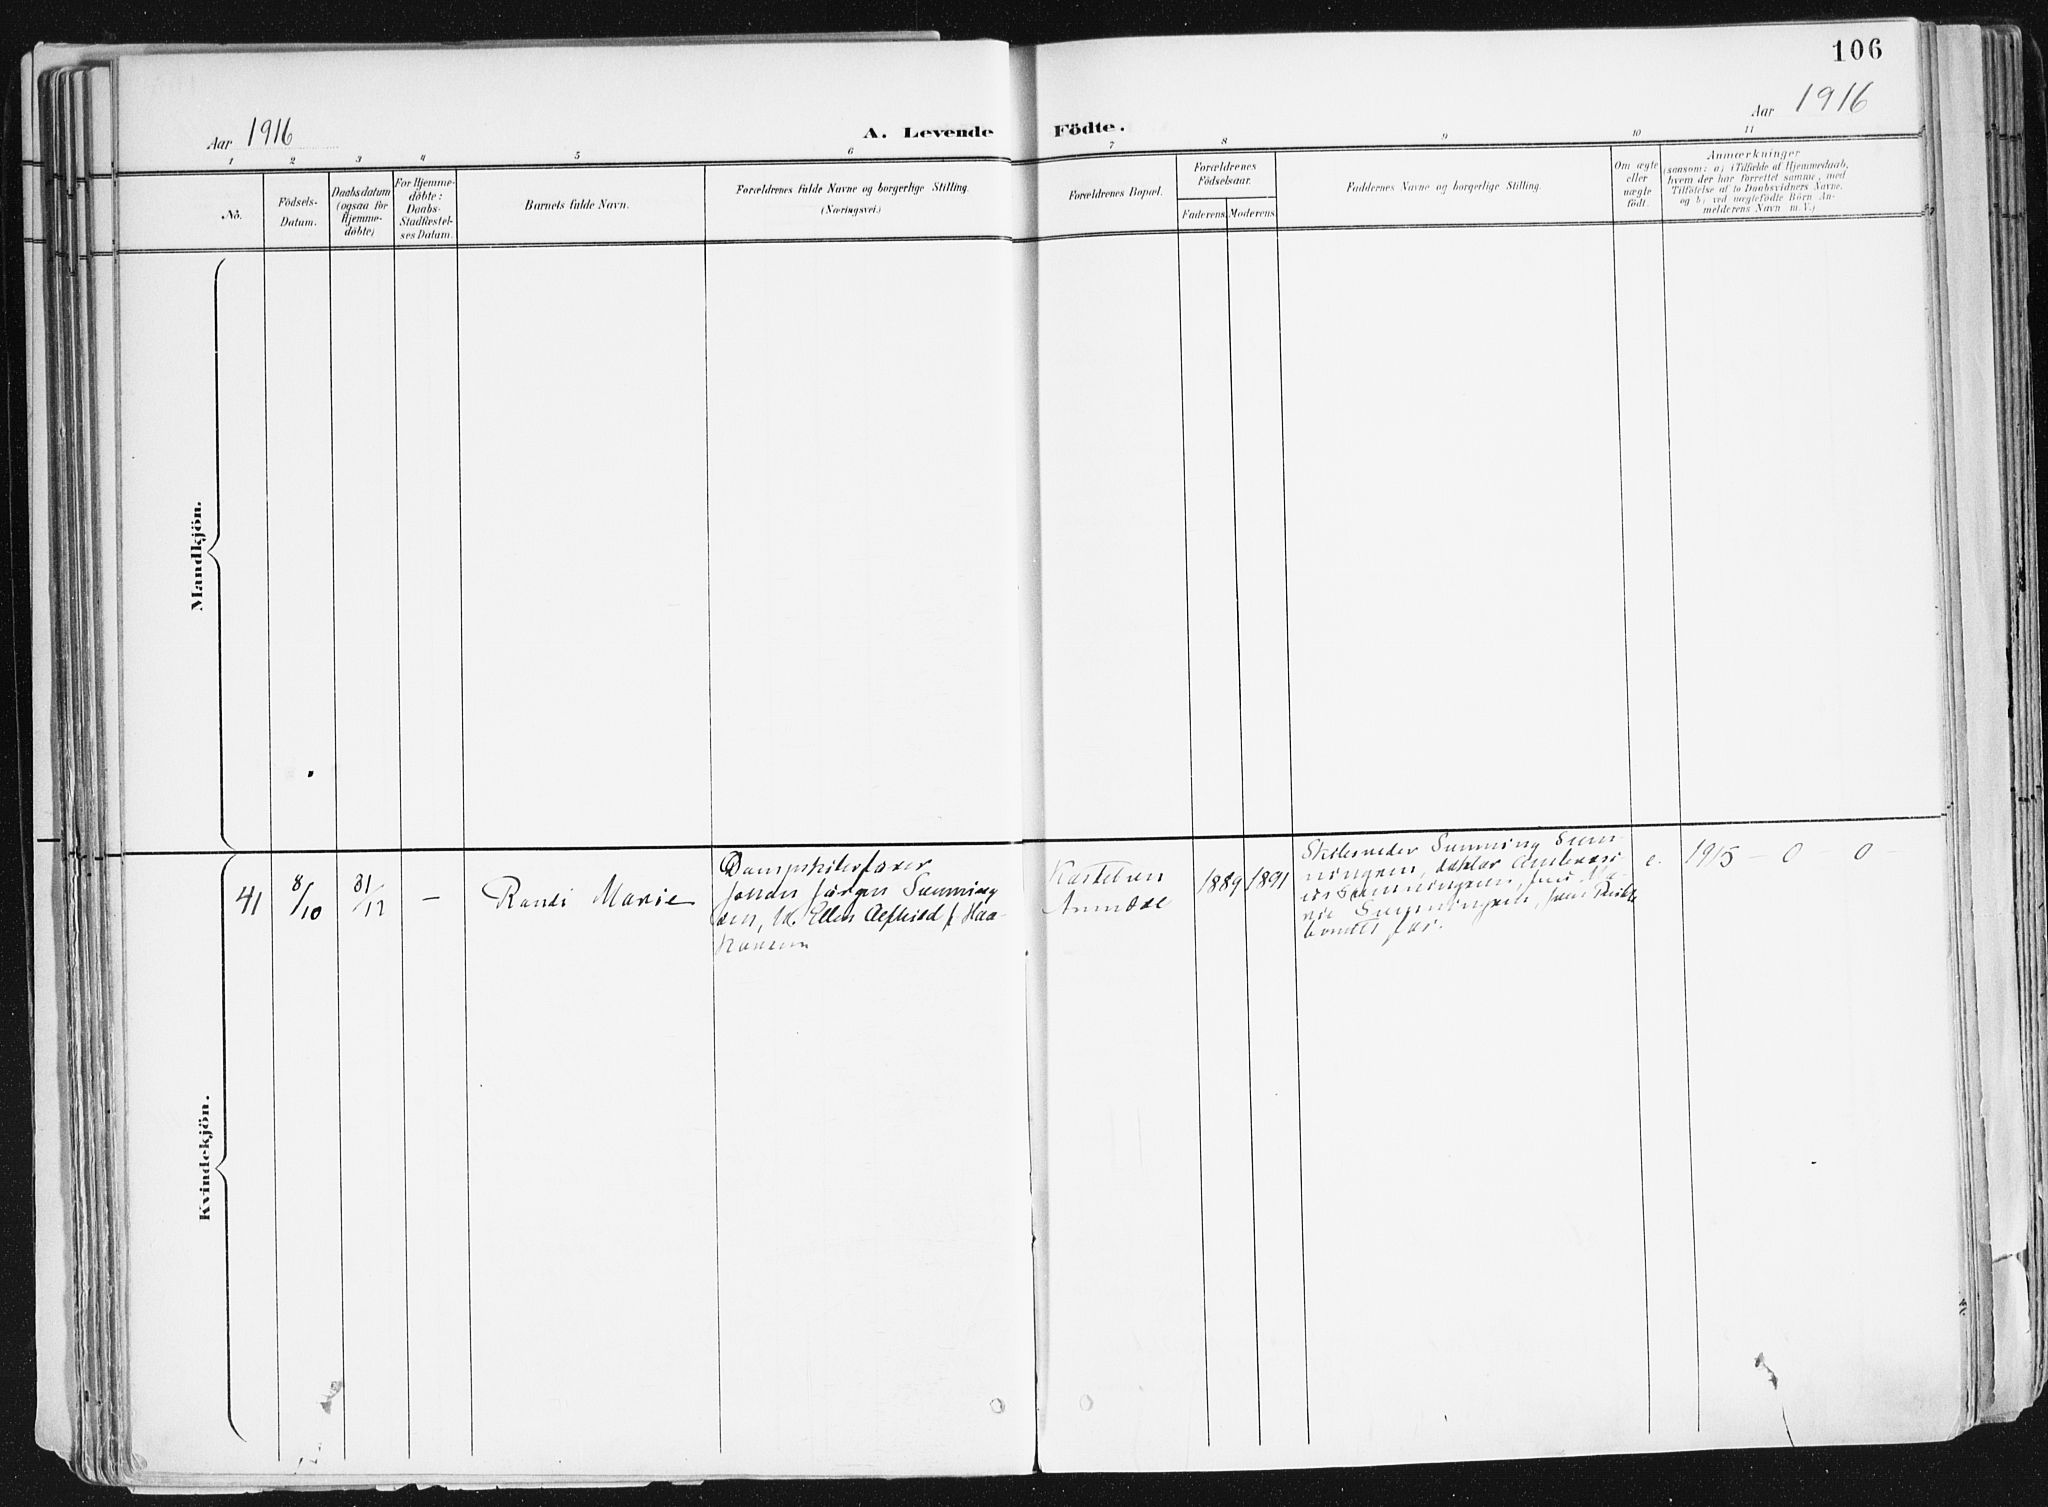 106
Aar 1916
Aar 1916
A. Levende Födte.
1 2 3 4 5 6 7 8 9 10 11
No.
Födsels-
Datum.
Daabsdatum
(ogsaa for
Hjemme-
döbte)
For Hjemme-
döbte:
Daabs-
Stadfæstel-
ses Datum.
Barnets fulde Navn.
Forældrenes fulde Navne og borgerlige Stilling.
(Næringsvei.)
Forældrenes Bopæl.
Forældrenes
Födselsaar.
Faderens. Moderens.
Faddernes Navne og borgerlige Stilling.
Om ægte
eller
uægte
födt.
Anmærkninger
(saasom: a) i Tilfælde af Hjemmedaab,
hvem der har forrettet samme, med
Tilföielse af to Daabsvidners Navne,
og b) ved uægtefödte Börn An-
melderens Navn m. V.)
Mandkjön.
Kvindekjön.
41
8/10
31/12
—
Randi Marie
Johan Jørgen Sunning
sen, Ellen
1889
1891
Sunning
Marie
far.
e.
1915 — 0 — 0 —